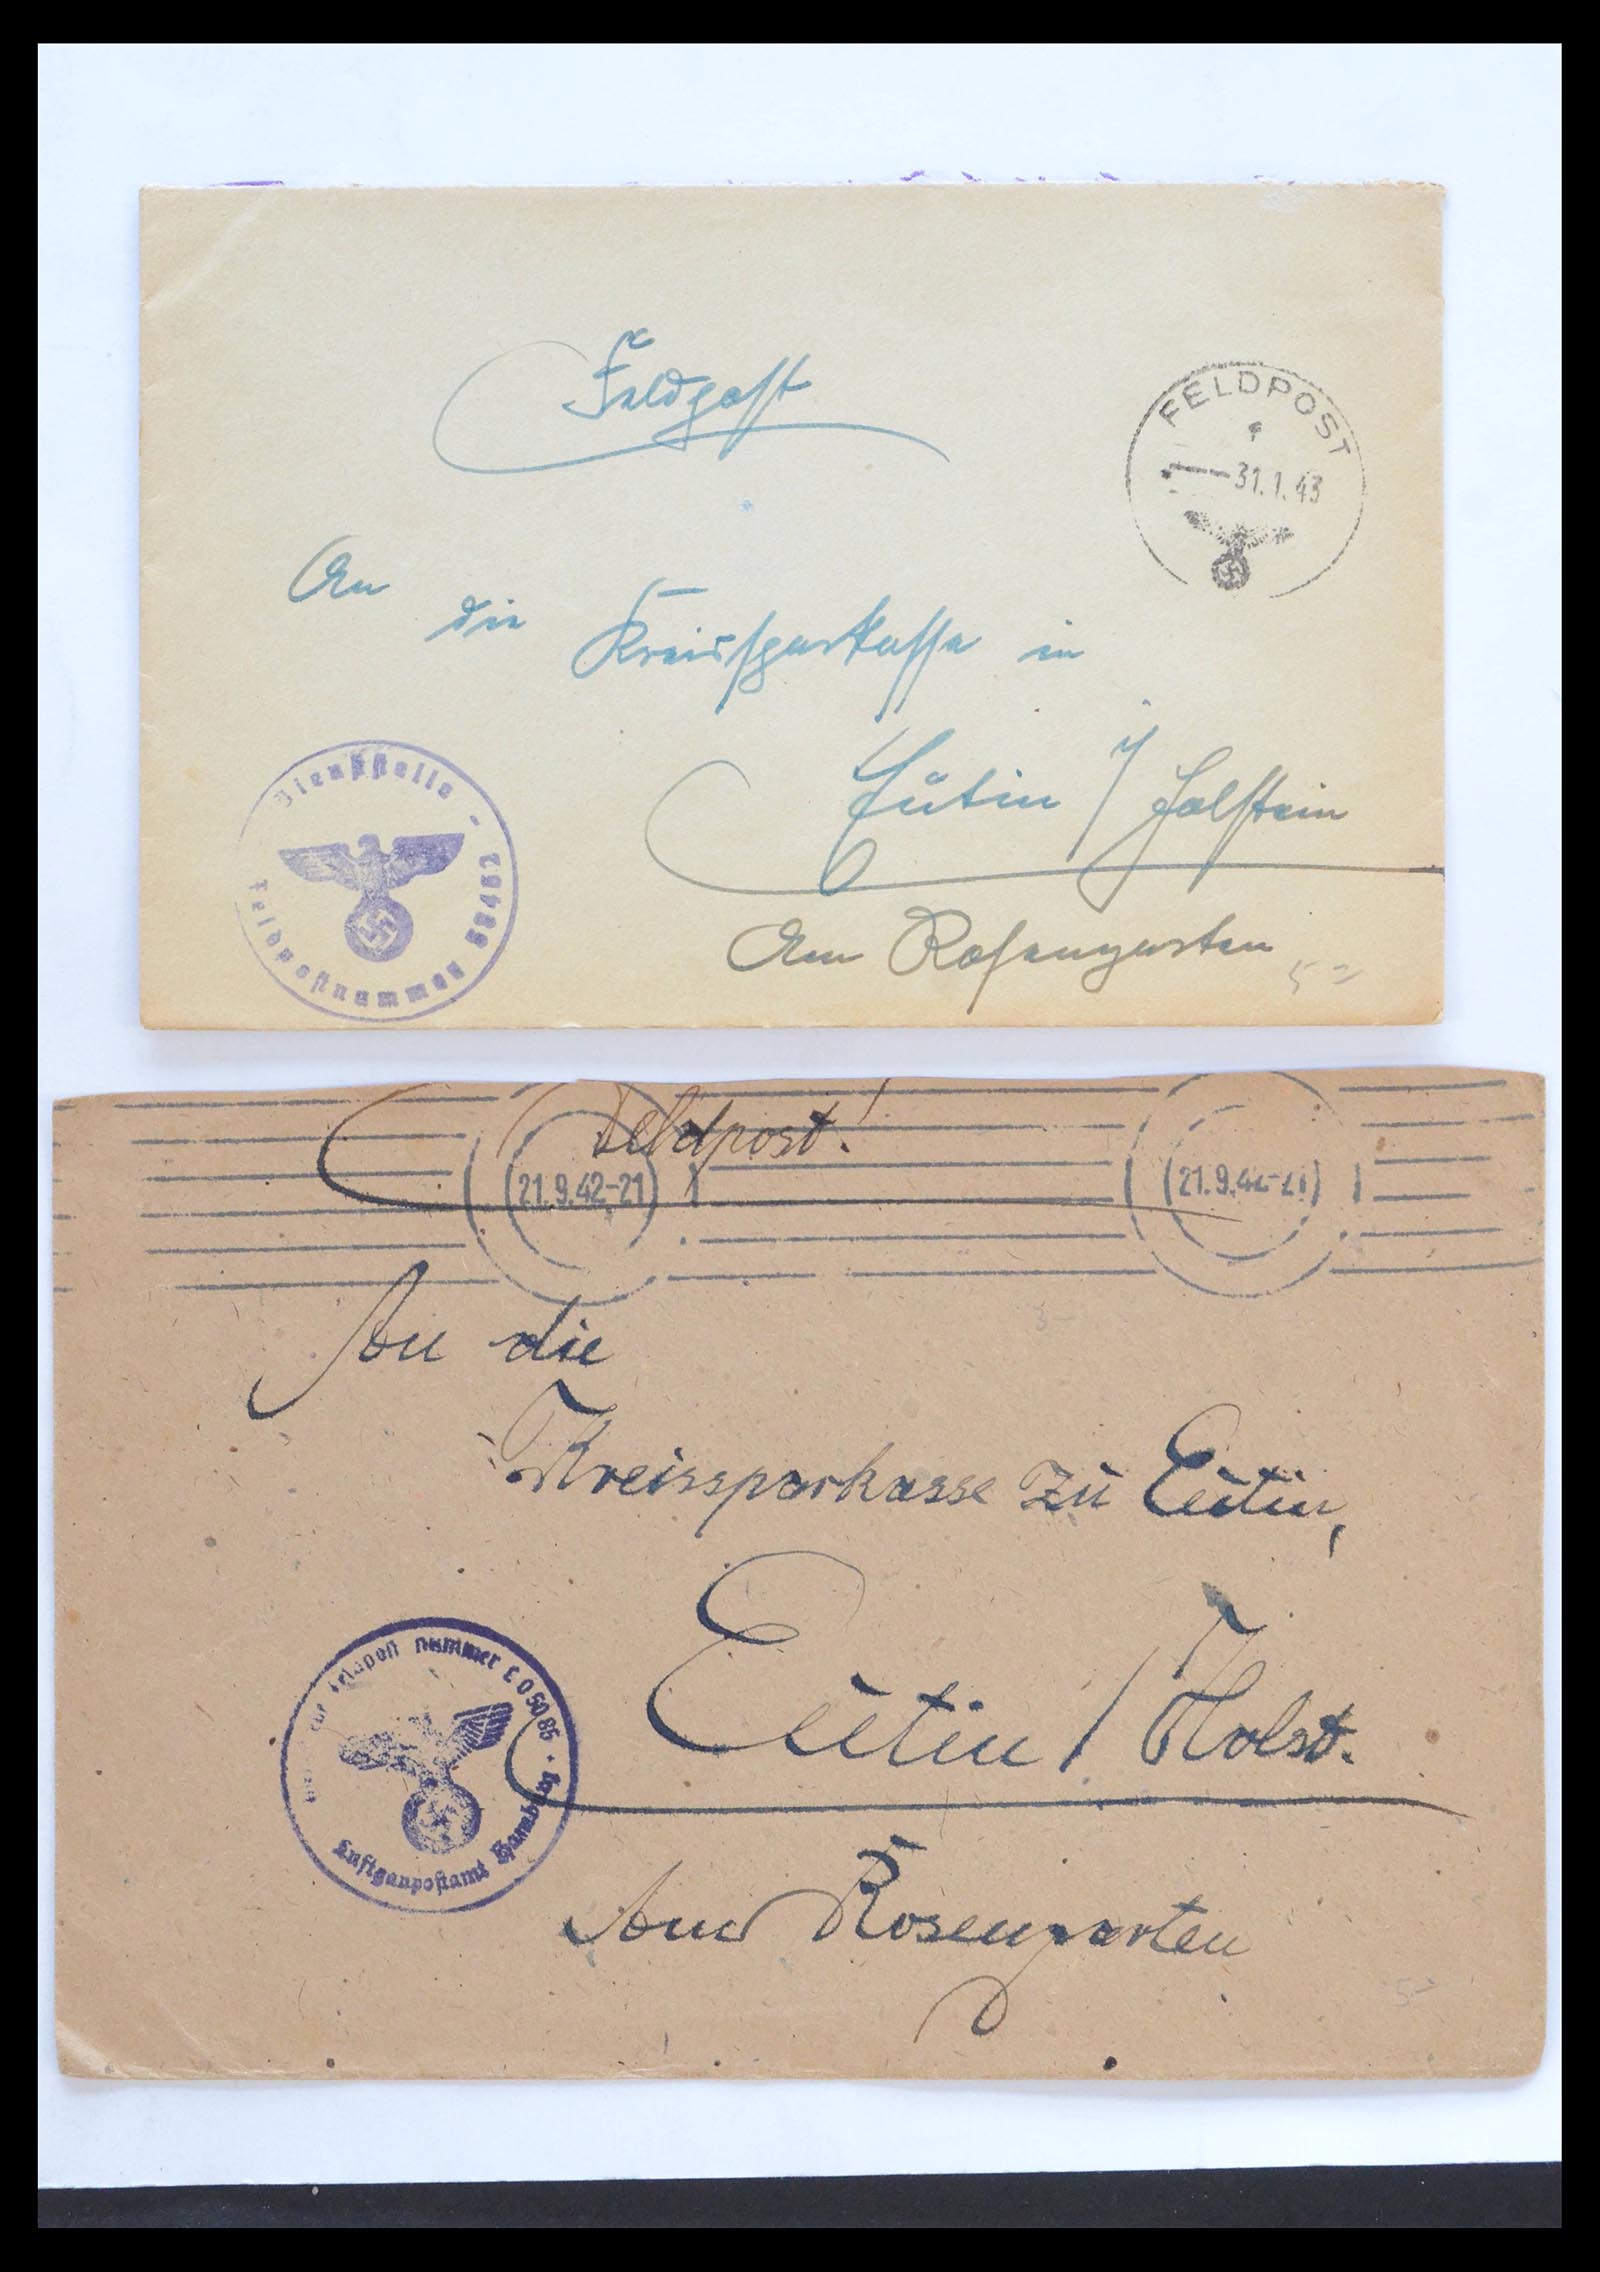 Feldpost
FELDPOST
31.1.43
An
die Kreissparkasse in
Eutin / Holstein
Am Rosengarten
5-
Dienststelle
Feldpostnummer
Feldpost!
21.9.42-21
21.9.42-21
An die
Kreissparkasse zu Eutin,
Eutin / Holst.
Am Rosengarten
5-
Feldpost nummer L 05086
Luftgaupostamt Hamburg